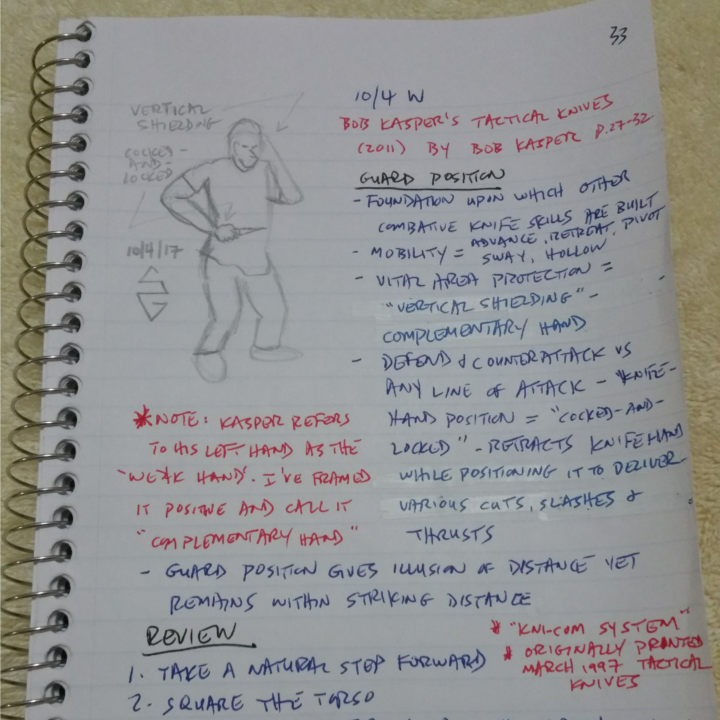 33
VERTICAL
SHIELDING
COCKED-
AND-
LOCKED
10/4/17
10/4 W
BOB KASPER'S TACTICAL KNIVES
(2011) BY BOB KASPER P.27-32
GUARD POSITION
- FOUNDATION UPON WHICH OTHER
COMBATIVE KNIFE SKILLS ARE BUILT
- MOBILITY = ADVANCE, RETREAT, PIVOT
SWAY, HOLLOW
- VITAL AREA PROTECTION =
"VERTICAL SHIELDING" -
COMPLEMENTARY HAND
- DEFEND & COUNTERATTACK VS
ANY LINE OF ATTACK - "KNIFE-
HAND POSITION = "COCKED-AND-
LOCKED" - RETRACTS KNIFE HAND
WHILE POSITIONING IT TO DELIVER
VARIOUS CUTS, SLASHES &
THRUSTS
*NOTE: KASPER REFERS
TO HIS LEFT HAND AS THE
"WEAK HAND". I'VE FRAMED
IT POSITIVE AND CALL IT
"COMPLEMENTARY HAND"
- GUARD POSITION GIVES ILLUSION OF DISTANCE YET
REMAINS WITHIN STRIKING DISTANCE
REVIEW
1. TAKE A NATURAL STEP FORWARD
2. SQUARE THE TORSO
* "KNI-COM SYSTEM"
* ORIGINALLY PRINTED
MARCH 1997 TACTICAL
KNIVES